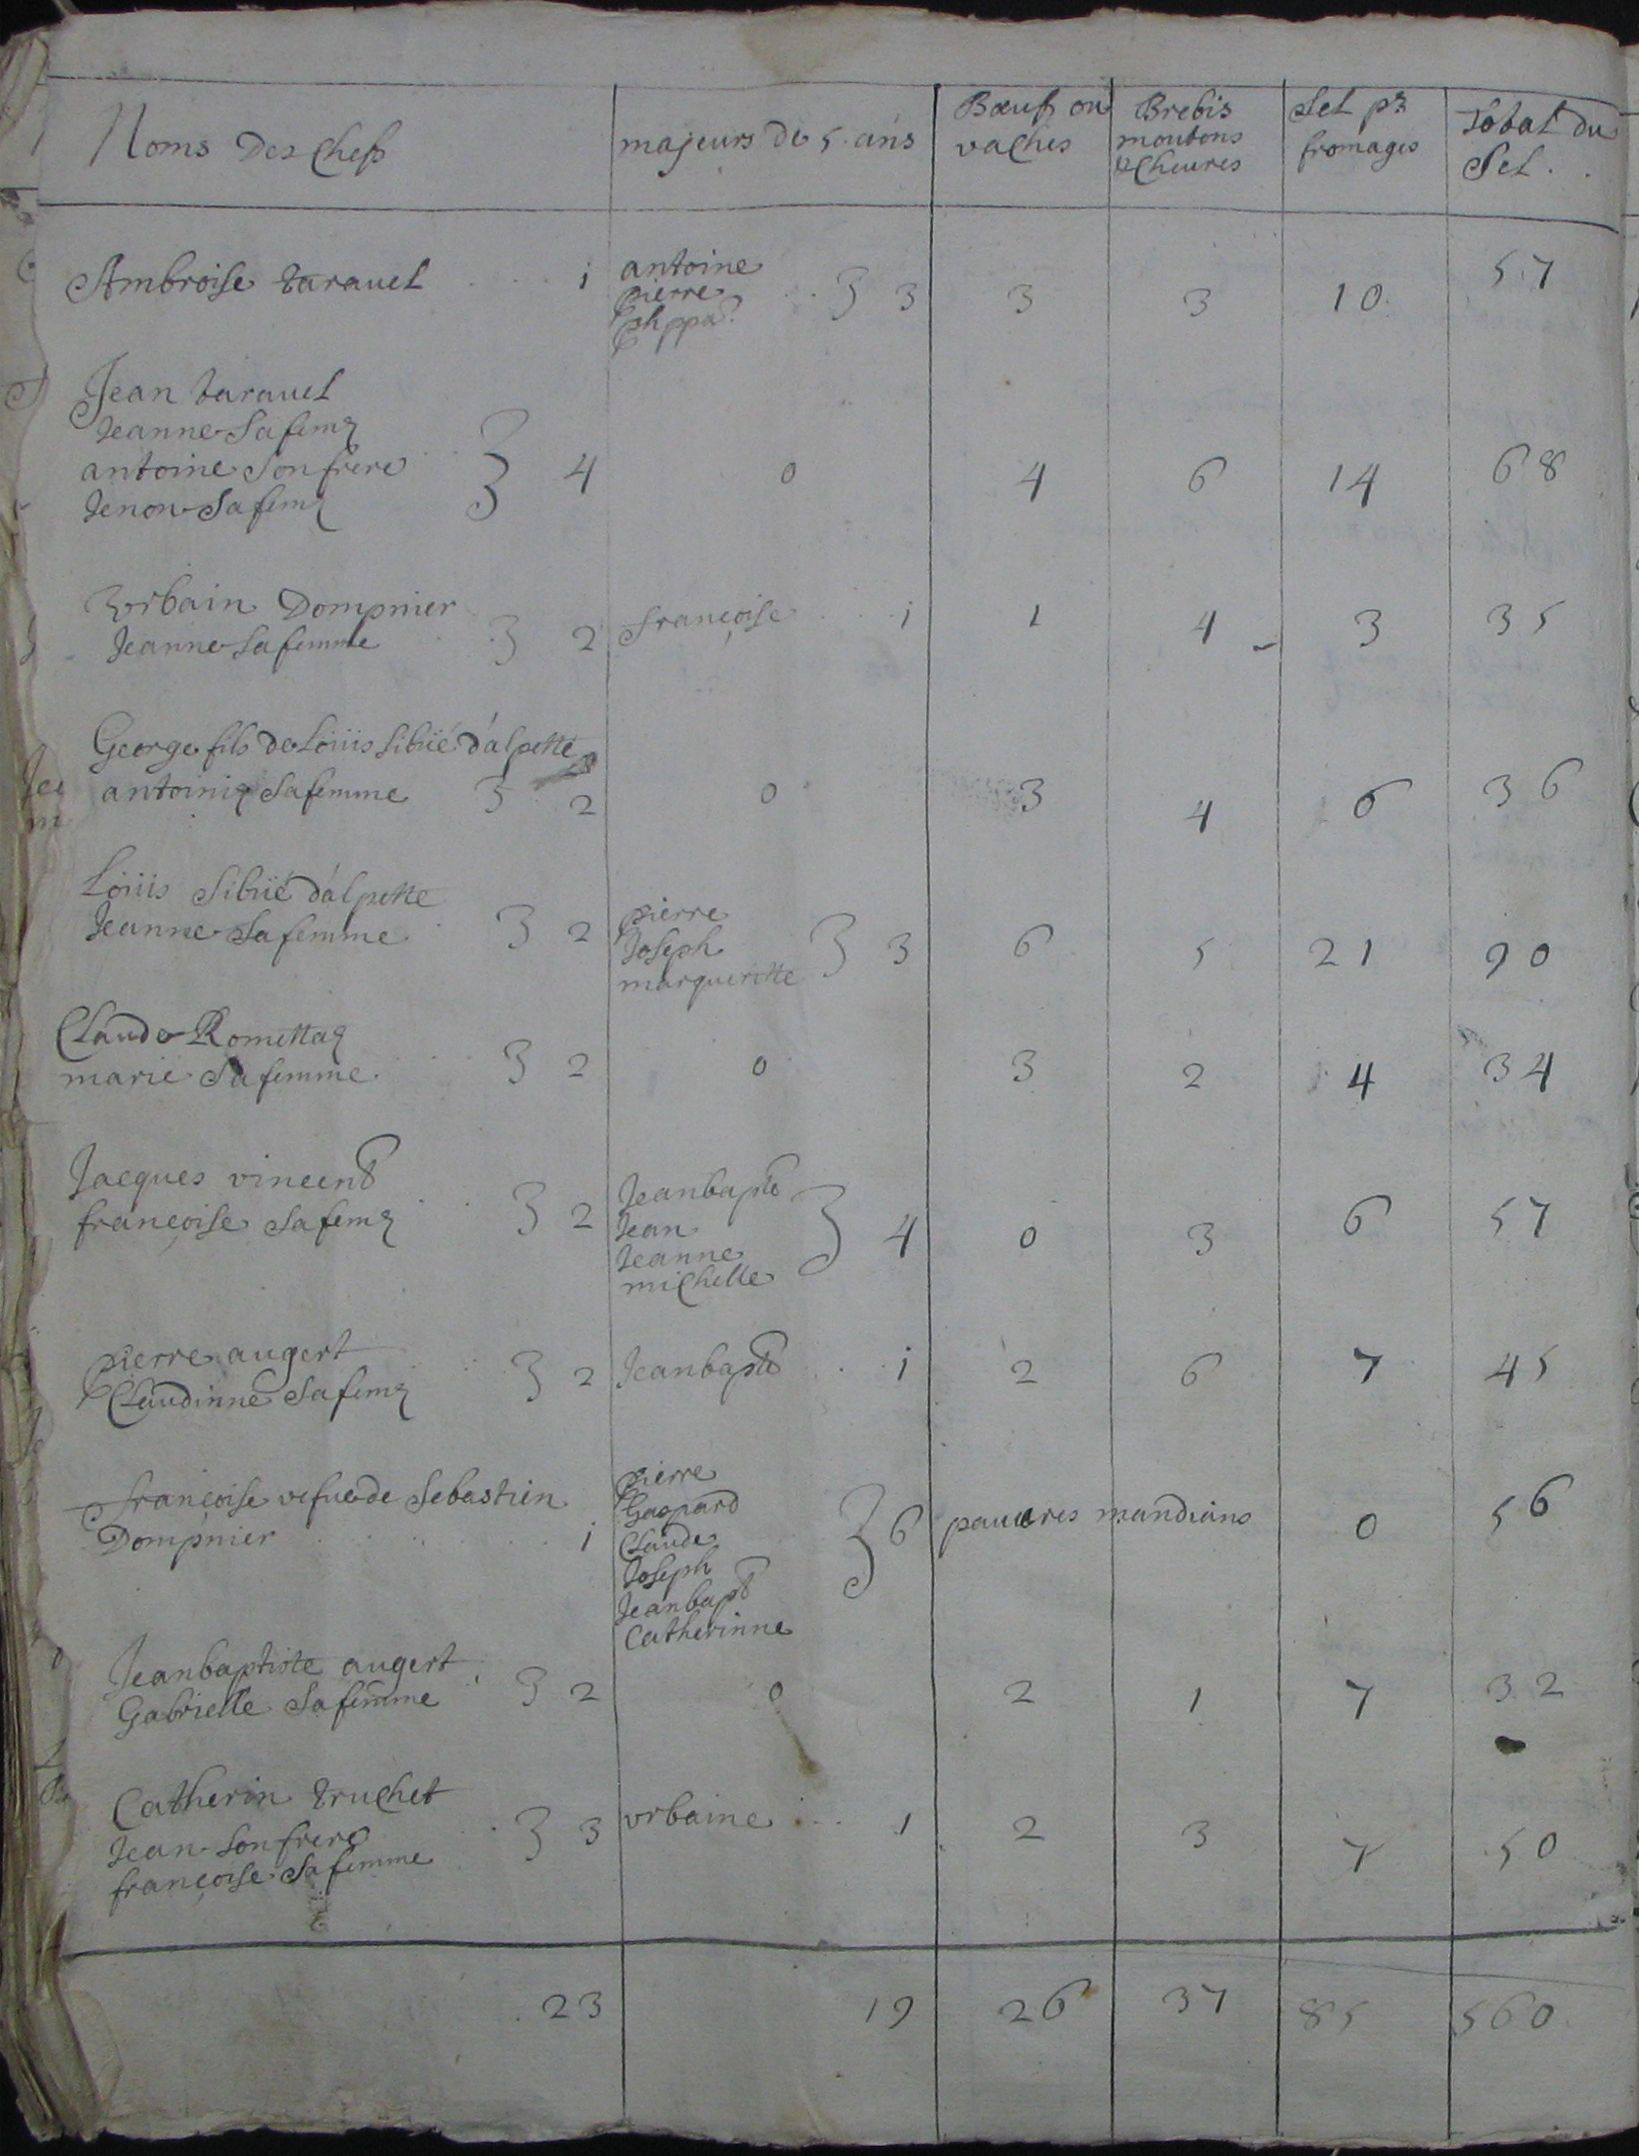 Noms Des Chefs	majeurs de 5. ans	Bœufs ou vaches	Brebis moutons & Cheures	Sel pr fromages	Total du Sel.
Ambroise taravel 1	antoine	3	3	10	57
pierre 3 3
Jean taravel
Jeanne Sa fem͠e
antoine Son frere 4	0	4	6	14	68
Jenon Sa fem͠e
Vrbain Dompnier
Jeanne Sa femme 2	françoise 1	1	4	3	35
George fils de Loüis Sibüé d'alpette
antoinie Sa femme 2	0	3	4	6	36
Loüis Sibüé d'alpette
Jeanne Sa femme 2	pierre	6	5	21	90
Joseph 3
margueritte
Claude Romettaz
marie Sa femme 2	0	3	2	4	34
Jacques vincent	Jeanbapte
françoise Sa fem͠e 2	Jean 4	0	3	6	57
Jeanne
michelle
pierre augert
Claudinne Sa fem͠e 2	Jeanbapte 1	2	6	7	45
françoise vefue de Sebastien	pierre
Dompnier 1	Gaspard 6	pauures mandians	0	56
Claude
Joseph
Jeanbapt
Catherinne
Jeanbaptiste augert
Gabrielle Sa femme 2	0	2	1	7	32
Catherin truchet
Jean Son frere 3	vrbaine 1	2	3	7	50
françoise Sa femme
23	19	26	37	85	560